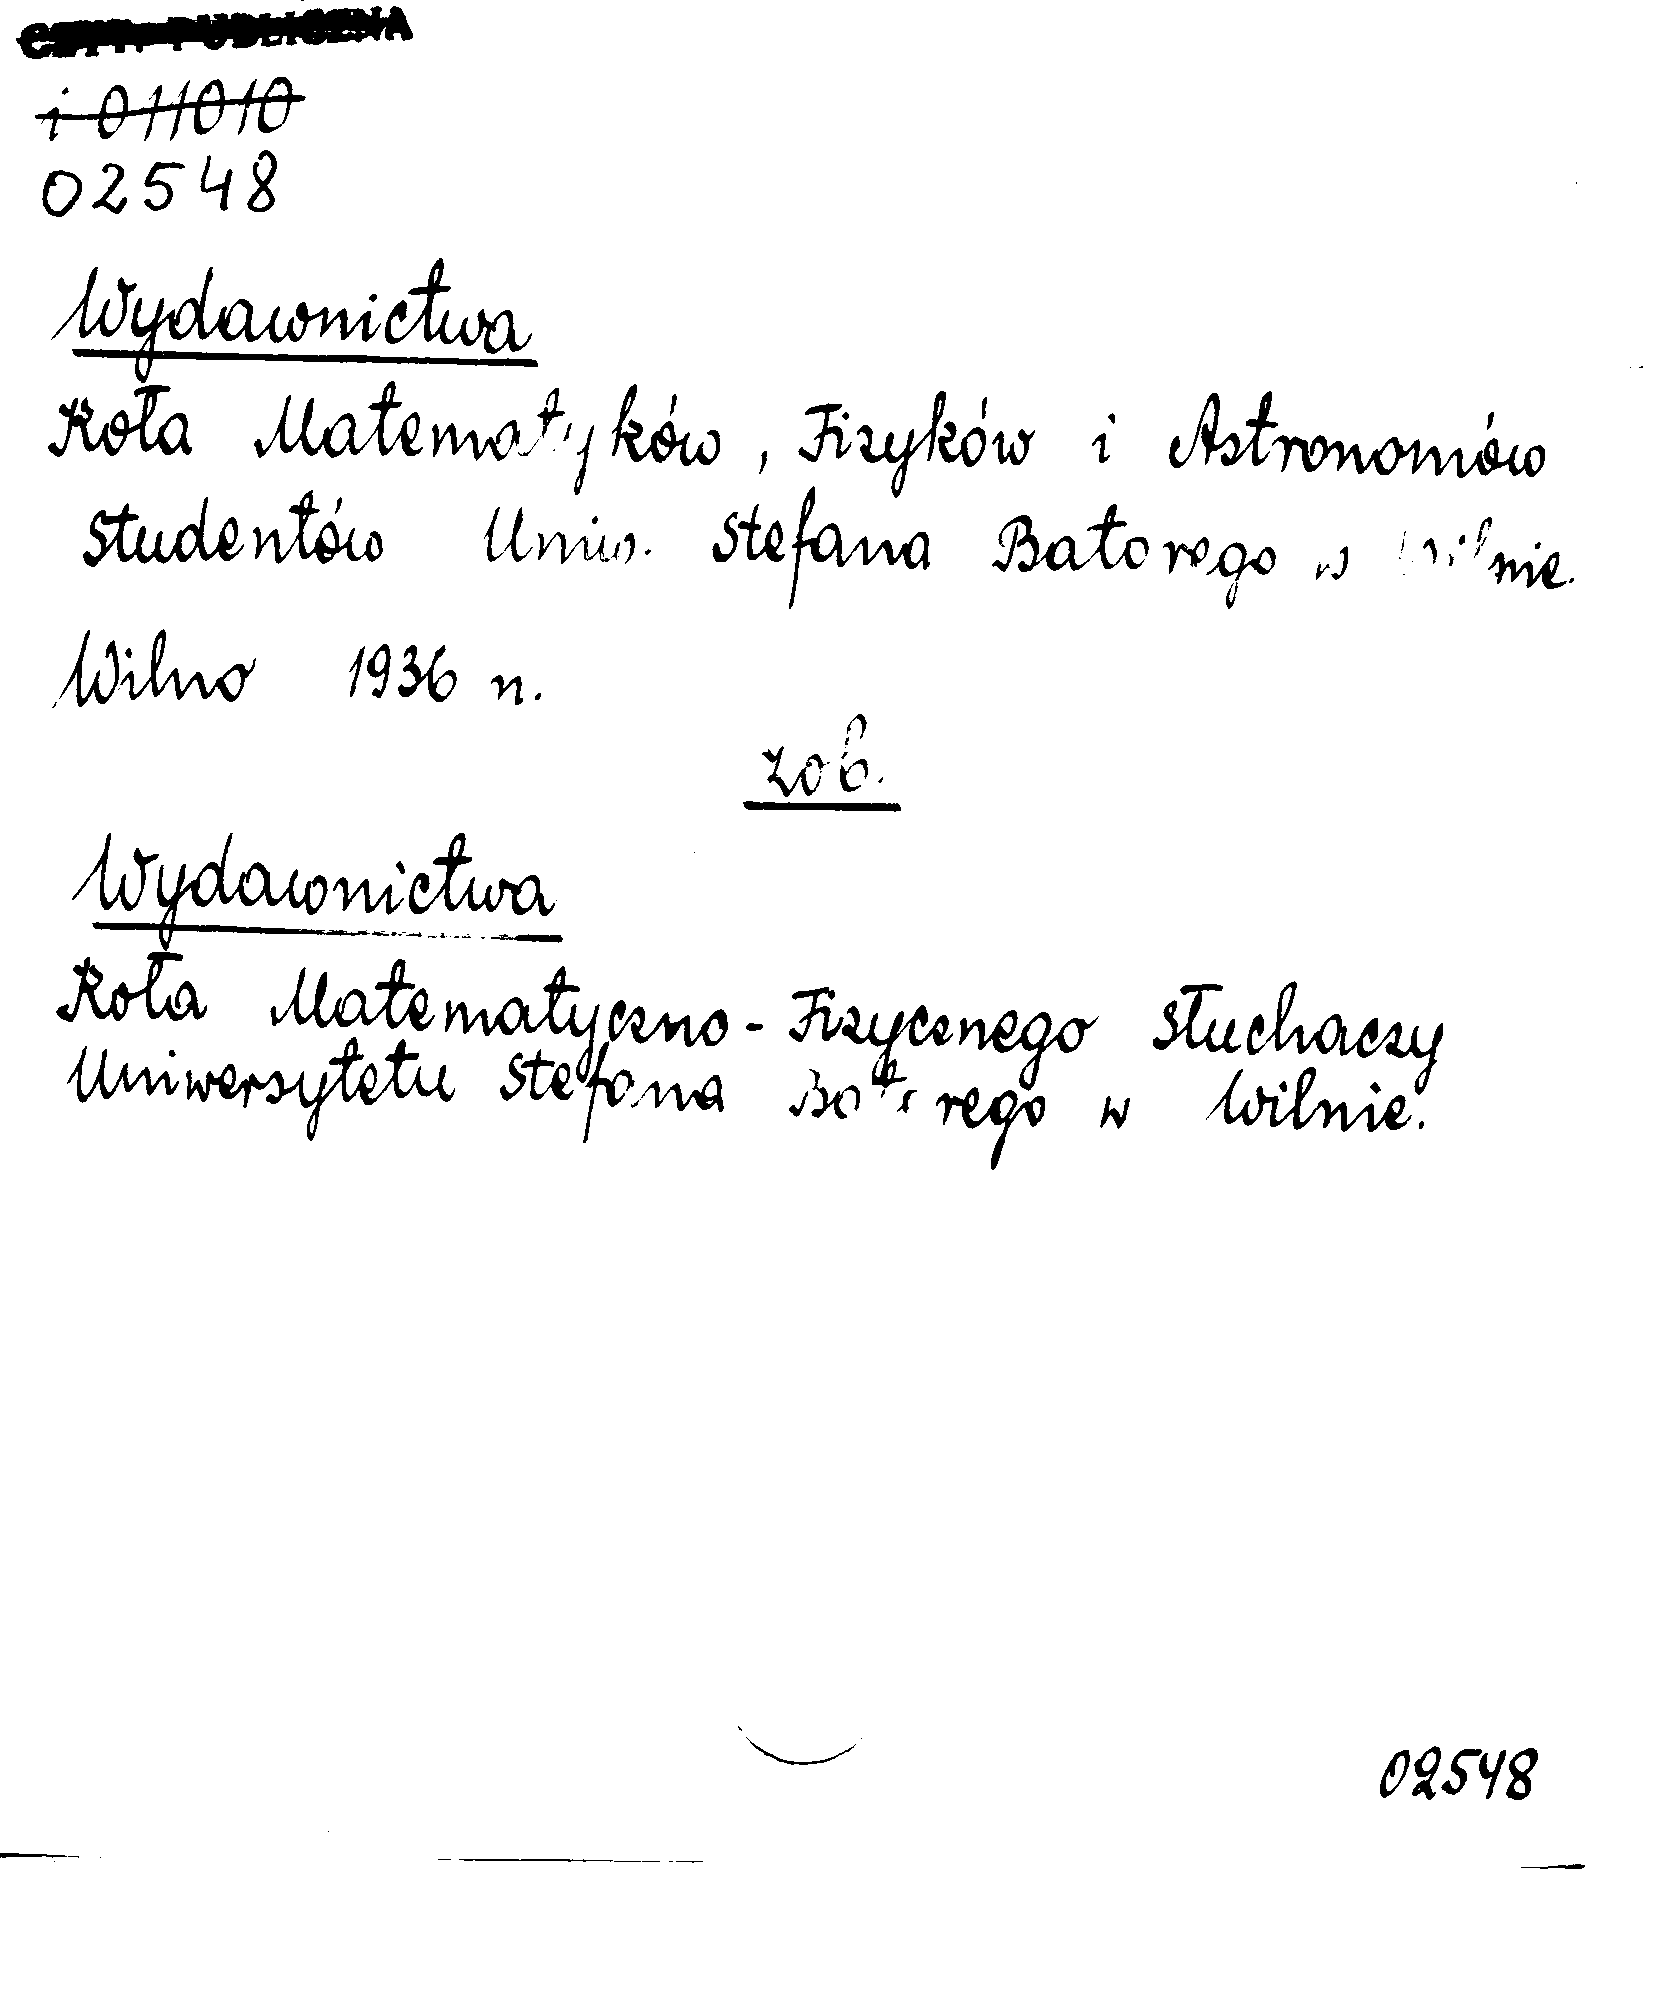 i 011010
02548
Wydawnictwa
Koła Matematyków, Fizyków i Astronomów
Studentów Uniw. Stefana Batorego w Wilnie.
Wilno 1936 r.
zob.
Wydawnictwa
Koła Matematyczno-Fizycznego Słuchaczy
Uniwersytetu Stefana Batorego w Wilnie.
02548